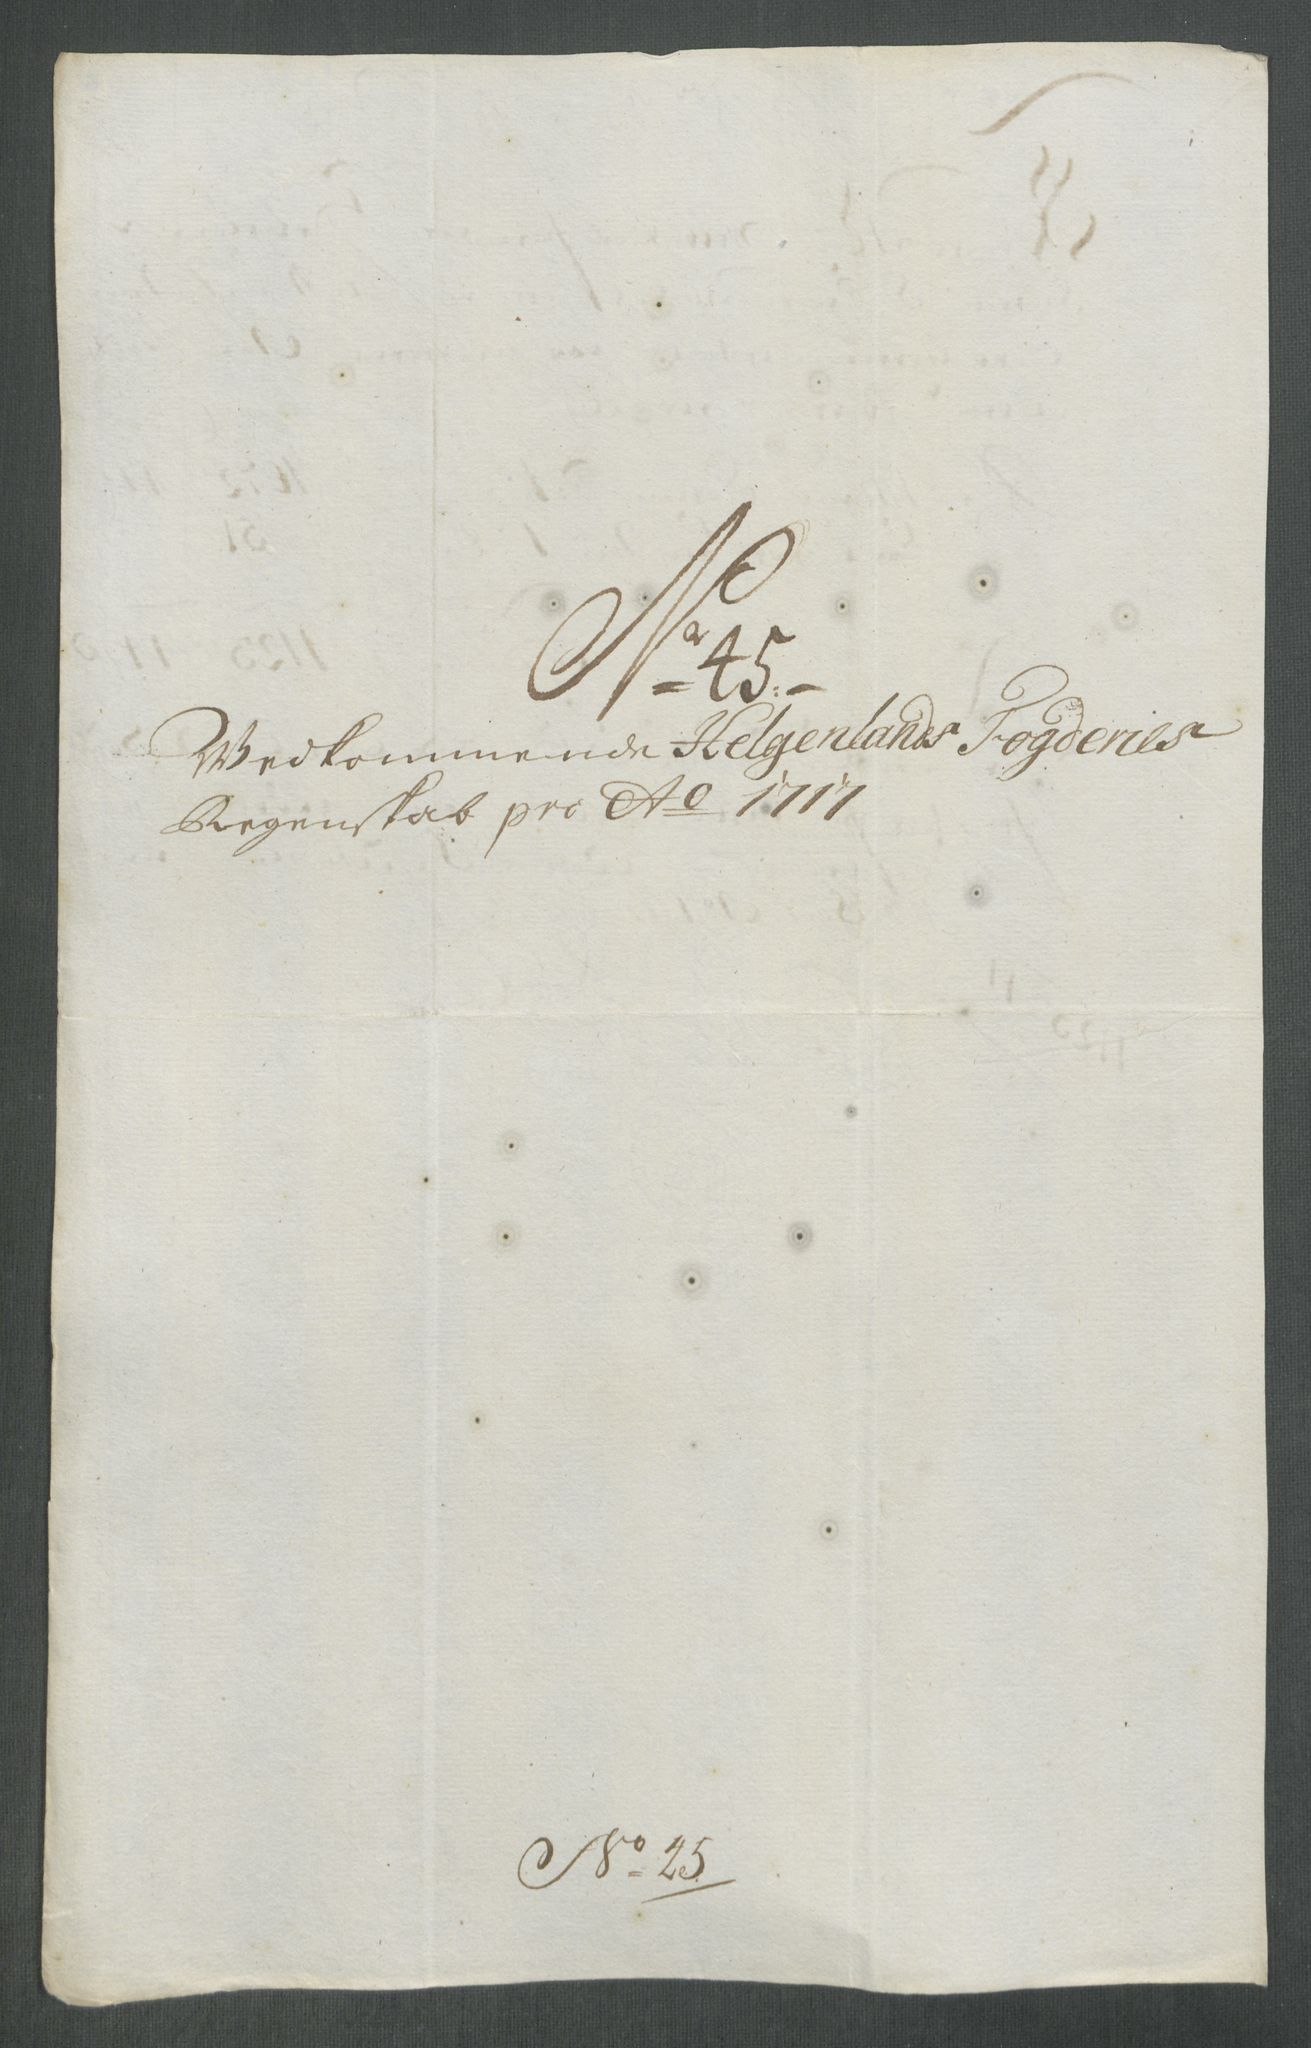 No 45.
Wedkommende Helgenlands Fogderies
Regenskab pro Ao 1717
No 45